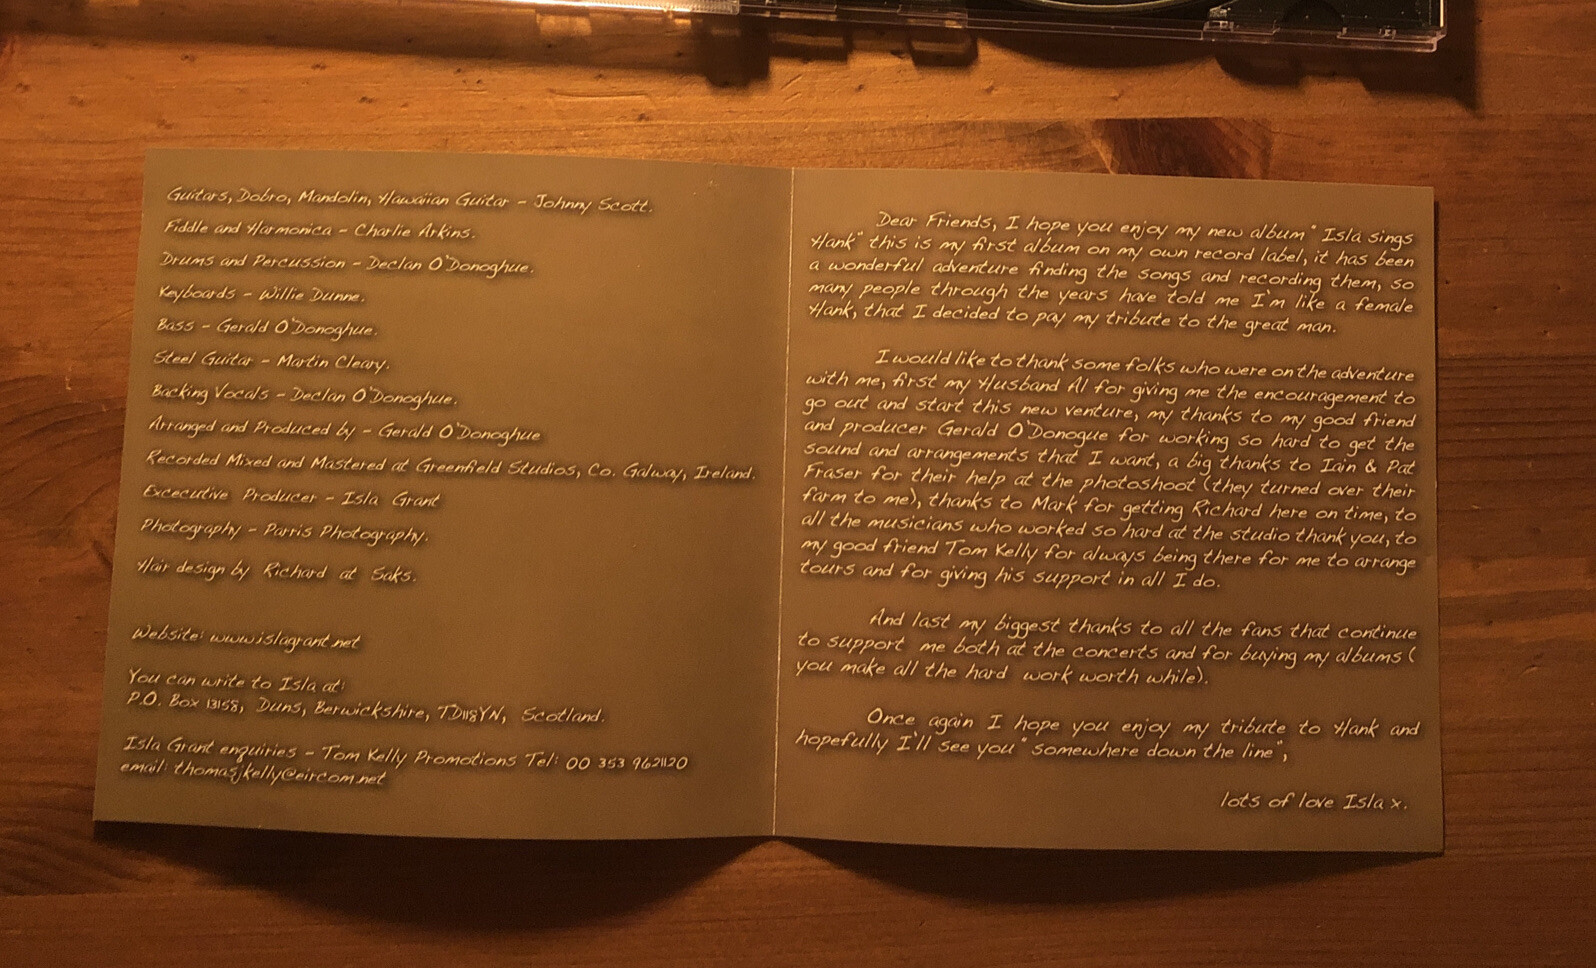 Guitars, Dobro, Mandolin, Hawaiian Guitar - Johnny Scott.
Fiddle and Harmonica - Charlie Arkins.
Drums and Percussion - Declan O'Donoghue.
Keyboards - Willie Dunne.
Bass - Gerald O'Donoghue.
Steel Guitar - Martin Cleary.
Backing Vocals - Declan O'Donoghue.
Arranged and Produced by - Gerald O'Donoghue
Recorded Mixed and Mastered at Greenfield Studios, Co. Galway, Ireland.
Excecutive Producer - Isla Grant
Photography - Parris Photography.
Hair design by Richard at Saks.
Website: www.islagrant.net
You can write to Isla at:
P.O. Box 13158, Duns, Berwickshire, TD118YN, Scotland.
Isla Grant enquiries - Tom Kelly Promotions Tel: 00 353 9621120
email: thomasjkelly@eircom.net
Dear Friends, I hope you enjoy my new album " Isla sings
Hank" this is my first album on my own record label, it has been
a wonderful adventure finding the songs and recording them, so
many people through the years have told me I'm like a female
Hank, that I decided to pay my tribute to the great man.
I would like to thank some folks who were on the adventure
with me, first my Husband Al for giving me the encouragement to
go out and start this new venture, my thanks to my good friend
and producer Gerald O'Donogue for working so hard to get the
sound and arrangements that I want, a big thanks to Iain & Pat
Fraser for their help at the photoshoot (they turned over their
farm to me), thanks to Mark for getting Richard here on time, to
all the musicians who worked so hard at the studio thank you, to
my good friend Tom Kelly for always being there for me to arrange
tours and for giving his support in all I do.
And last my biggest thanks to all the fans that continue
to support me both at the concerts and for buying my albums (
you make all the hard work worth while).
Once again I hope you enjoy my tribute to Hank and
hopefully I'll see you " somewhere down the line",
lots of love Isla x.